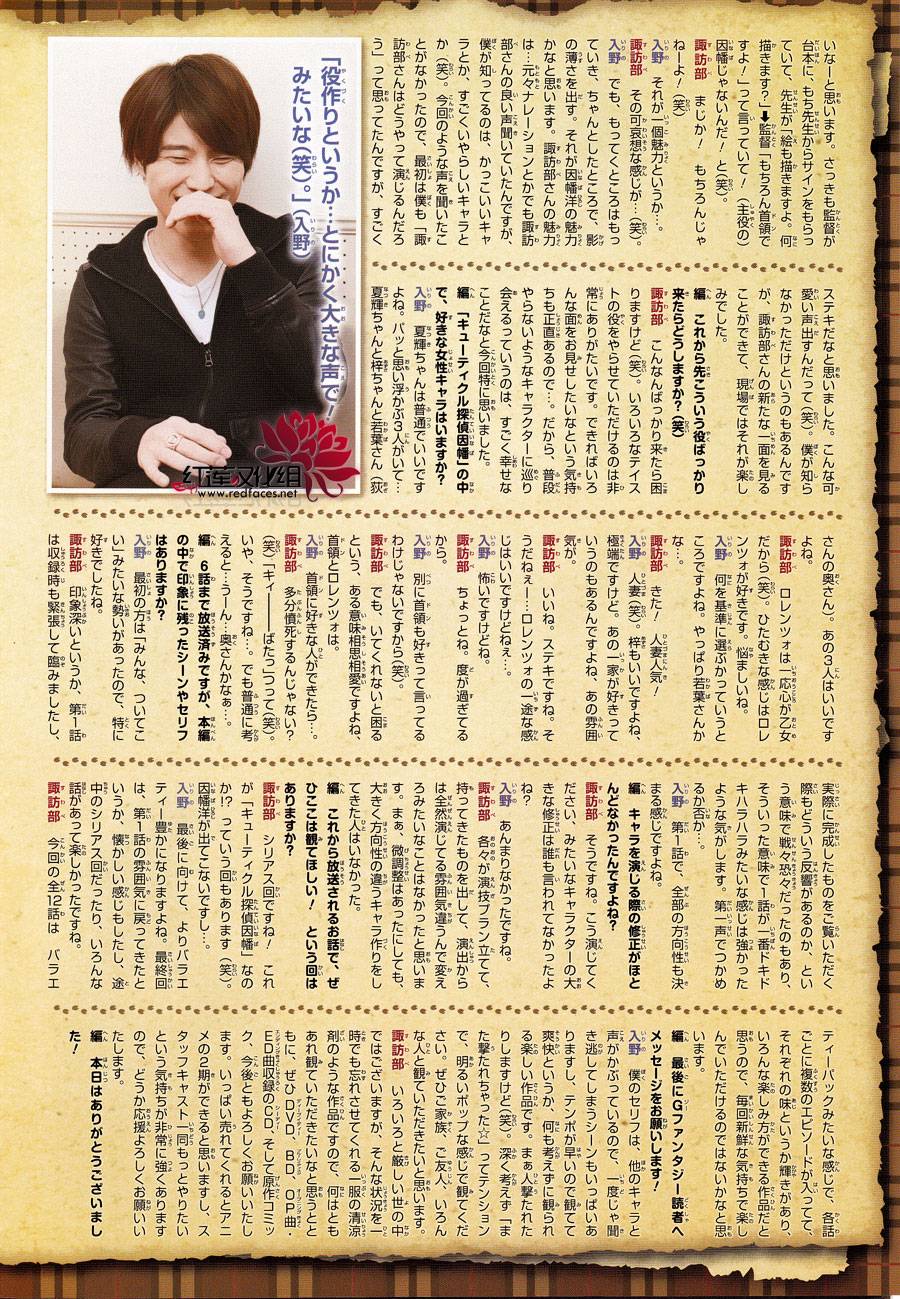 いなーと思います。さっきも監督が
台本に、もち先生からサインをもらっ
ていて、先生が「絵も描きますよ。何
描きます？」➡監督「もちろん首領で
すよ！」って言っていて！（主役の）
因幡じゃないんだ！と（笑）。
諏訪部　まじか！　もちろんじゃ
ねーよ！（笑）
入野　それが一個魅力というか…。
諏訪部　その可哀想な感じが…（笑）。
入野　でも、もってくところはもっ
ていき、ちゃんとしたところで、影
の薄さを出す。それが因幡洋の魅力
かなと思います。諏訪部さんの魅力
は…元々ナレーションとかでも諏訪
部さんの良い声聞いていたんですが、
僕が知ってるのは、かっこいいキャ
ラとか、すごくいやらしいキャラと
か（笑）。今回のような声を聞いたこ
とがなかったので、最初は僕も「諏
訪部さんはどうやって演じるんだろ
う」って思ってたんですが、すごく
「役作りというか…とにかく大きな声で！
みたいな（笑）。」（入野）
红莲汉化组
www.redfaces.net
ステキだなと思いました。こんな可
愛い声出すんだって（笑）。僕が知ら
なかっただけというのもあるんです
が、諏訪部さんの新たな一面を見る
ことができて、現場ではそれが楽し
みでした。
編　これから先こういう役ばっかり
来たらどうしますか？（笑）
諏訪部　こんなんばっかり来たら困
りますけど（笑）。いろいろなテイス
トの役をやらせていただけるのは非
常にありがたいです。できればいろ
んな面をお見せしたいなという気持
ちも正直あるので…。だから、普段
やらないようなキャラクターに巡り
会えるっていうのは、すごく幸せな
ことだなと今回特に思いました。
編　「キューティクル探偵因幡」の中
で、好きな女性キャラはいますか？
入野　夏輝ちゃんは普通でいいです
よね。パッと思い浮かぶ3人がいて…
夏輝ちゃんと梓ちゃんと若葉さん（荻
さんの奥さん）。あの3人はいいです
よね。
諏訪部　ロレンツォは一応心が乙女
だから（笑）。ひたむきな感じはロレ
ンツォが好きです。悩ましいね。
入野　何を基準に選ぶかっていうと
ころですよね。やっぱり若葉さんか
な…。
諏訪部　きた！　人妻人気！
入野　人妻（笑）。梓もいいですよね、
極端ですけど。あの一家が好きって
いうのもあるんですよね、あの雰囲
気が。
諏訪部　いいね。ステキですね。そ
うだねぇー…ロレンツォの一途な感
じはいいですけどねぇ…。
入野　怖いですけどね。
諏訪部　ちょっとね。度が過ぎてる
から。
入野　別に首領も好きって言ってる
わけじゃないですから（笑）。
諏訪部　でも、いてくれないと困る
という、ある意味相思相愛ですよね、
首領とロレンツォは。
入野　首領に好きな人ができたら…。
諏訪部　多分憤死するんじゃない？
（笑）「キィ――――ばたっ」つって（笑）。
いや、そうですね…。でも普通に考
えると…うーん…奥さんかなぁ…。
編　6話まで放送済みですが、本編
の中で印象に残ったシーンやセリフ
はありますか？
入野　最初の方は「みんな、ついてこ
い」みたいな勢いがあったので、特に
好きでしたね。
諏訪部　印象深いというか、第1話
は収録時も緊張して臨みましたし、
実際に完成したものをご覧いただく
際もどういう反響があるのか、とい
う意味で戦々恐々だったのもあり、
そういった意味で1話が一番ドキド
キハラハラみたいな感じは強かった
ような気がします。第一声でつかめ
るか否か…。
入野　第1話で、全部の方向性も決
まる感じですよね。
編　キャラを演じる際の修正がほと
んどなかったんですよね？
諏訪部　そうですね。こう演じてく
ださい、みたいなキャラクターの大
きな修正は誰も言われてなかったよ
ね？
入野　あんまりなかったですね。
諏訪部　各々が演技プラン立てて、
持ってきたものを出して、演出から
は全然演じてる雰囲気違うんで変え
ろみたいなことはなかったと思いま
す。まぁ、微調整はあったにしても、
大きく方向性の違うキャラ作りをし
てきた人はいなかった。
編　これから放送されるお話で、ぜ
ひここは観てほしい！　という回は
ありますか？
諏訪部　シリアス回ですね！　これ
が「キューティクル探偵因幡」なの
か!?っていう回もあります（笑）。
因幡洋が出てこないですし…。
入野　最後に向けて、よりバラエ
ティー豊かになりますよね。最終回
は、第1話の雰囲気に戻ってきたと
いうか、懐かしい感じもしたし、途
中のシリアス回だったり、いろんな
話があって楽しかったですね。
諏訪部　今回の全12話は　バラエ
ティーパックみたいな感じで、各話
ごとに複数のエピソードが入ってて、
それぞれの味というか輝きがあり、
いろんな楽しみ方ができる作品だと
思うので、毎回新鮮な気持ちで楽し
んでいただけるのではないかなと思
います。
編　最後にGファンタジー読者へ
メッセージをお願いします！
入野　僕のセリフは、他のキャラと
声がかぶっているので、一度じゃ聞
き逃してしまうシーンもいっぱいあ
りますし、テンポが早いので観てて
爽快というか、何も考えずに観られ
る楽しい作品です。まぁ人撃たれた
りしますけど（笑）。深く考えず「ま
た撃たれちゃった☆」ってテンション
で、明るいポップな感じで観てくだ
さい。ぜひご家族、ご友人、いろん
な人と観ていただきたいと思います。
諏訪部　いろいろと厳しい世の中
ではございますが、そんな状況を一
時でも忘れさせてくれる一服の清涼
剤のような作品ですので、何はとも
あれ観ていただきたいなと思うとと
もに、ぜひDVD、BD、OP曲・
ED曲収録のCD、そして原作コミッ
ク、今後ともよろしくお願いいたし
ます。いっぱい売れてくれるとアニ
メの2期ができると思いますし、ス
タッフキャスト一同もっとやりたい
という気持ちが非常に強くあります
ので、どうか応援よろしくお願いい
たします。
編　本日はありがとうございまし
た！